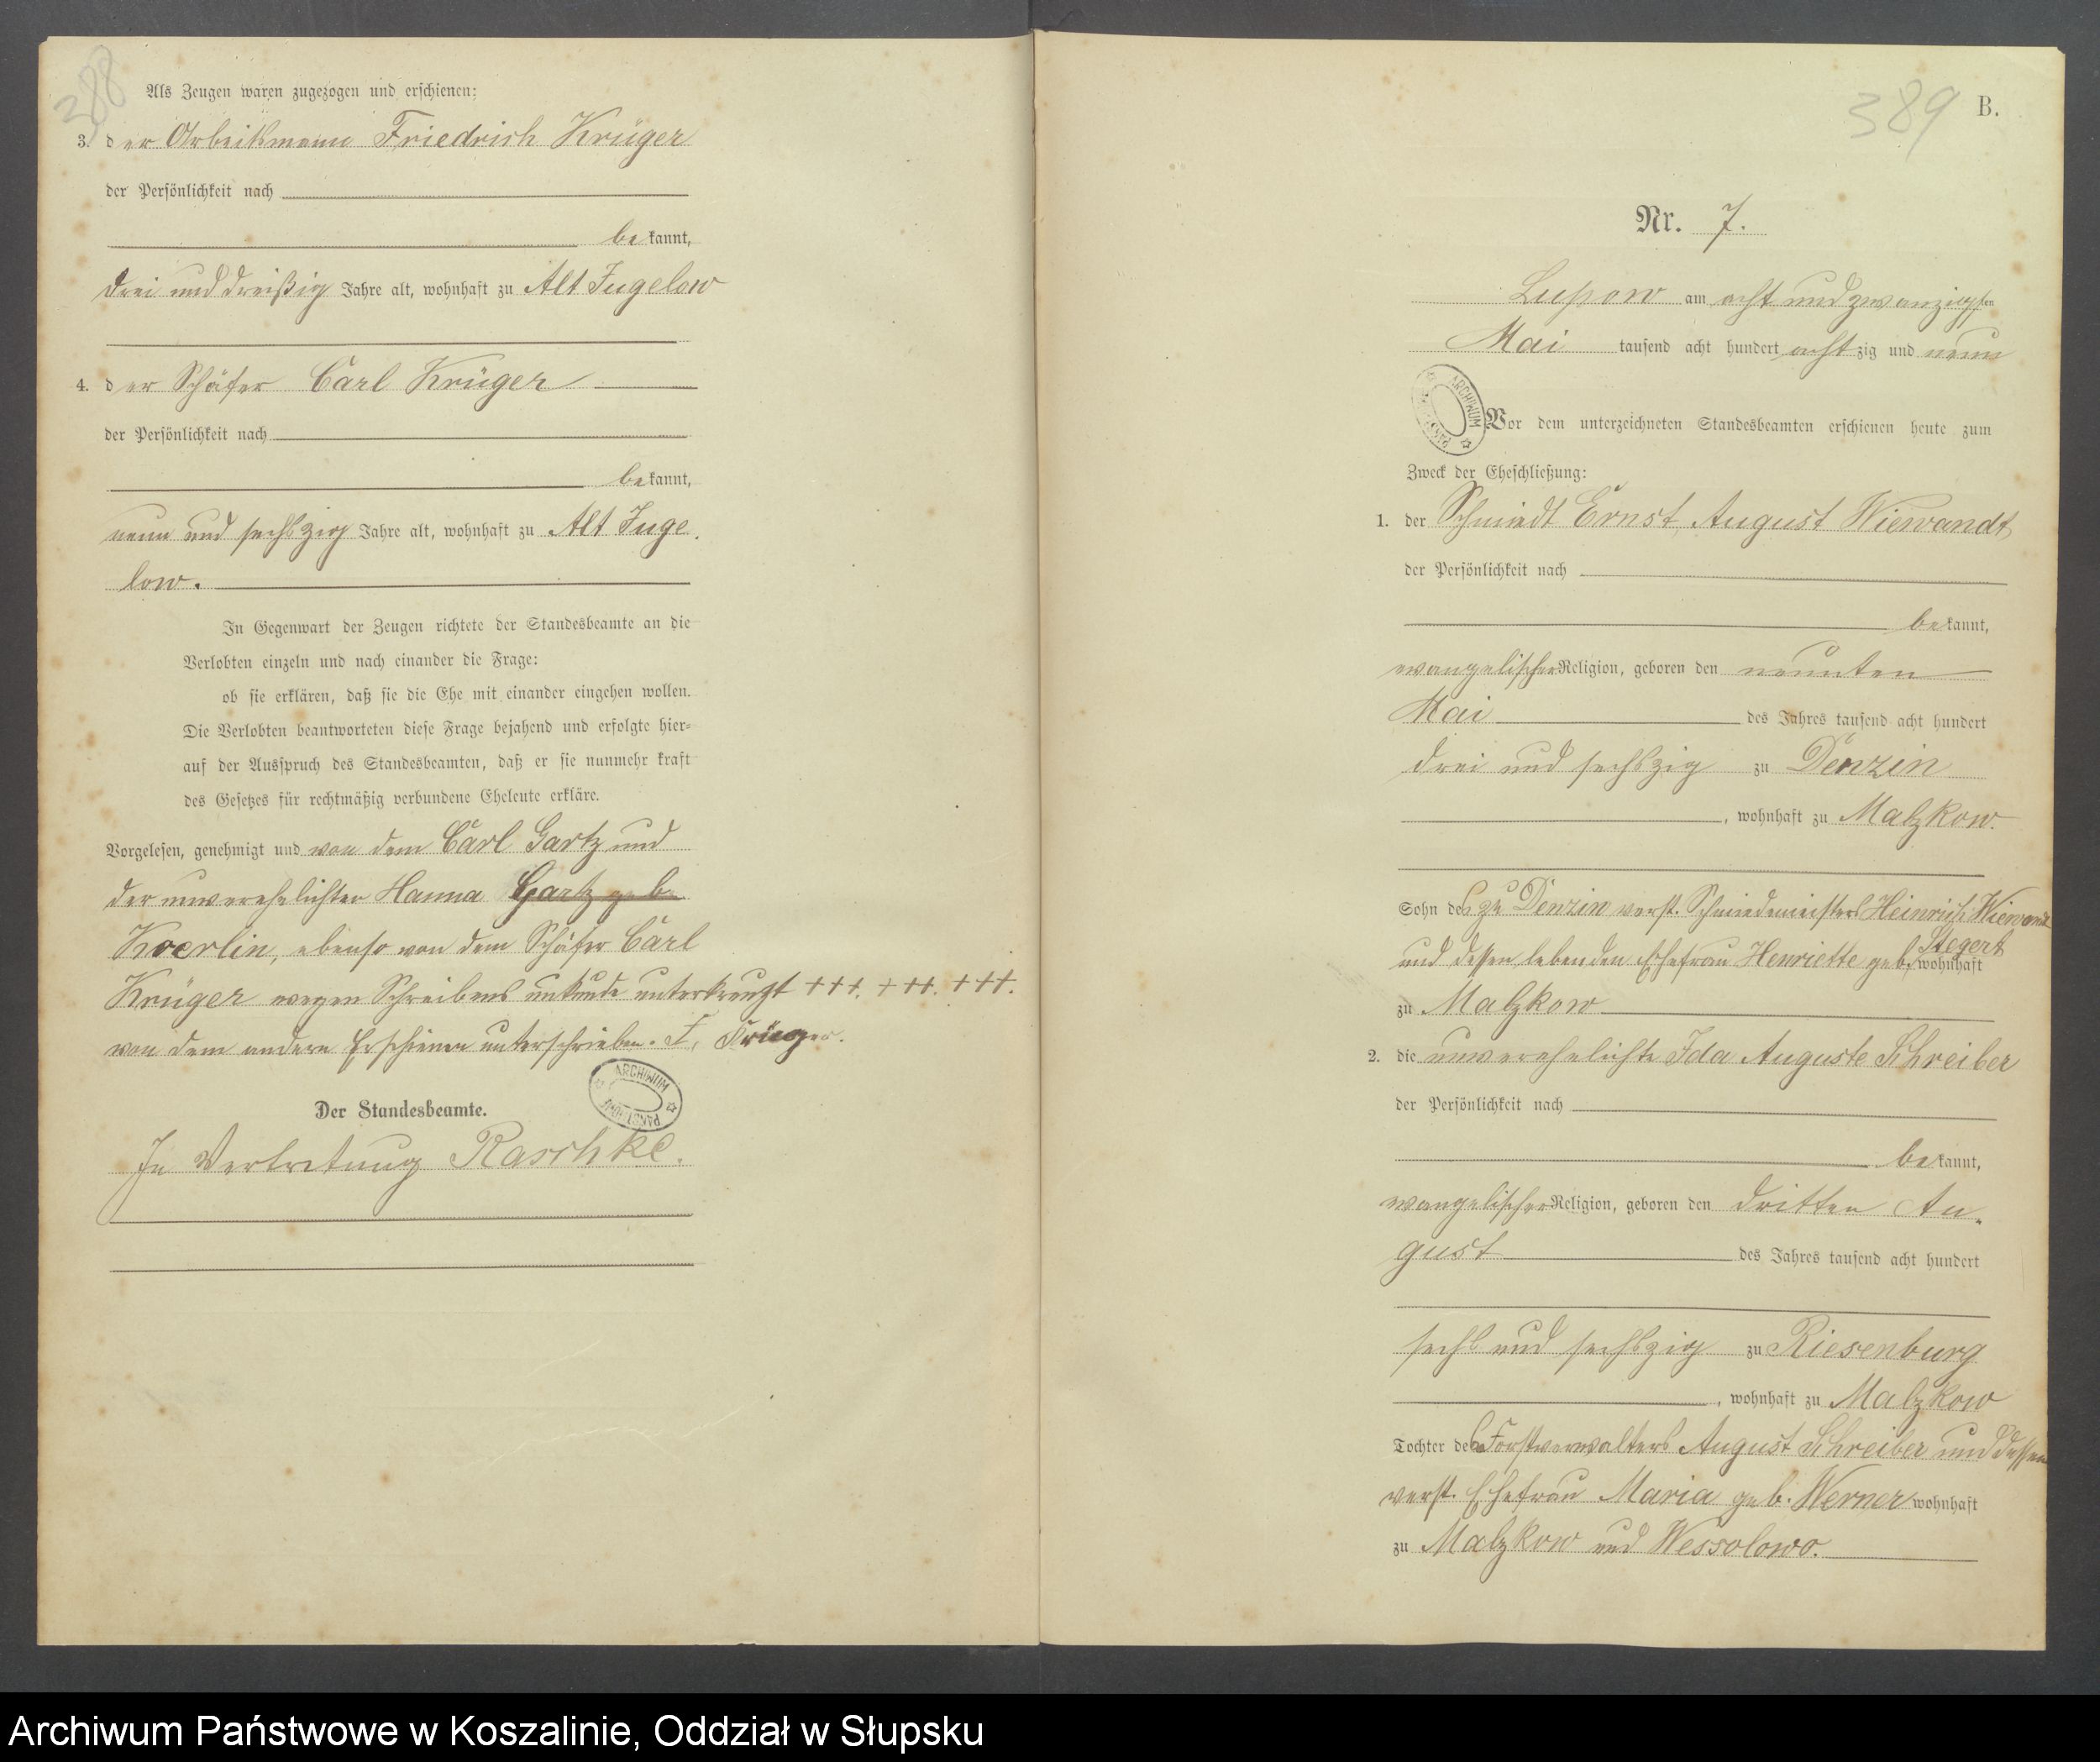 388
Als Zeugen waren zugezogen und erschienen:
3. der Arbeitsmann Friedrich Krüger
der Persönlichkeit nach
bekannt,
drei und dreißig Jahre alt, wohnhaft zu Alt Jugelow
4. der Schäfer Carl Krüger
der Persönlichkeit nach
bekannt,
neun und sechszig Jahre alt, wohnhaft zu Alt Juge-
low.
In Gegenwart der Zeugen richtete der Standesbeamte an die
Verlobten einzeln und nach einander die Frage:
ob sie erklären, daß sie die Ehe mit einander eingehen wollen.
Die Verlobten beantworteten diese Frage bejahend und erfolgte hier-
auf der Ausspruch des Standesbeamten, daß er sie nunmehr kraft
des Gesetzes für rechtmäßig verbundene Eheleute erkläre.
Vorgelesen, genehmigt und von dem Carl Gartz und
der unverehelichten Hanna Gartz geb.
Koerlin, ebenso von dem Schäfer Carl
Krüger wegen Schreibens unkunde unterkreuzt +++. +++. +++.
von dem andern Erschienen unterschrieben. F. Krüger.
ARCHIWUM
Der Standesbeamte.
In Vertretung Raschke.
389
B.
Nr. 7.
Lupow am acht und zwanzigsten
Mai tausend acht hundert achtzig und neun
ARCHIWUM
Vor dem unterzeichneten Standesbeamten erschienen heute zum
Zweck der Eheschließung:
1. der Schmiedt Ernst August Wiewandt
der Persönlichkeit nach
bekannt,
evangelischer Religion, geboren den neunten
Mai des Jahres tausend acht hundert
drei und sechszig zu Denzin
, wohnhaft zu Malzkow.
Sohn des zu Denzin verst. Schmiedemeisters Heinrich Wiewandt
und dessen lebenden Ehefrau Henriette geb. Stegert wohnhaft
zu Malzkow
2. die unverehelichte Ida Auguste Schreiber
der Persönlichkeit nach
bekannt,
evangelischer Religion, geboren den dritten Au-
gust des Jahres tausend acht hundert
sechs und sechszig zu Riesenburg
, wohnhaft zu Malzkow
Tochter des Forstverwalters August Schreiber und dessen
verst. Ehefrau Maria geb. Werner wohnhaft
zu Malzkow und Wessolowo.
Archiwum Państwowe w Koszalinie, Oddział w Słupsku